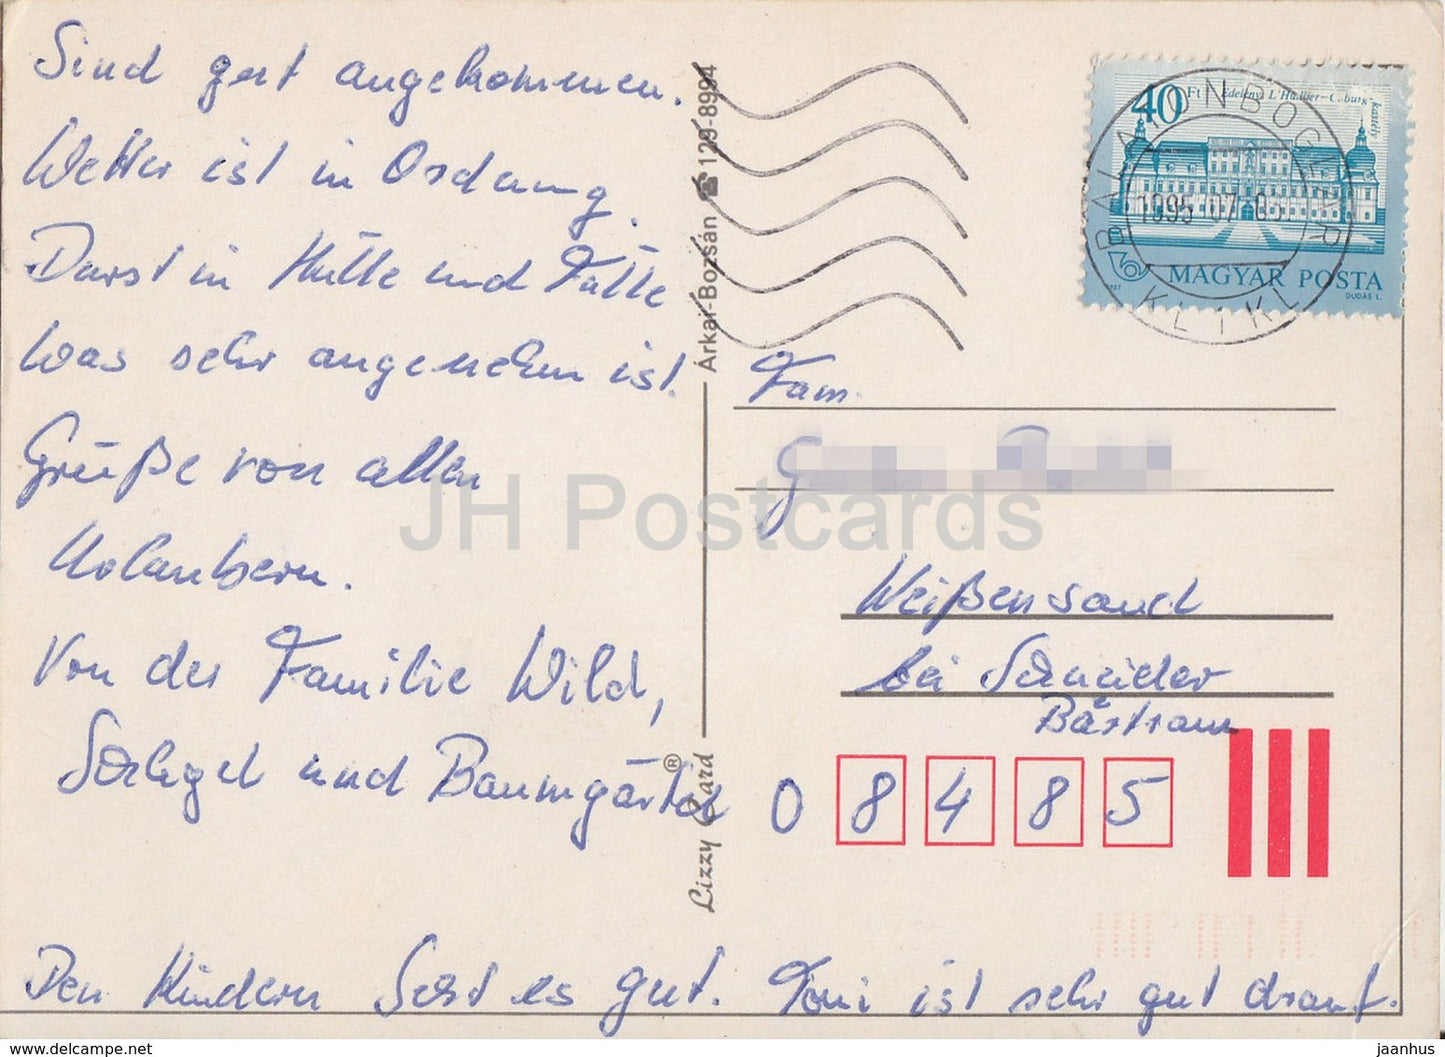 Sind gut angekommen.
Wetter ist in Ordnung.
Durst in Hülle und Fülle
was sehr angenehm ist.
Grüße von allen
Urlaubern.
Von der Familie Wild,
Schlegel und Baumgärtel
Den Kindern geht es gut. Toni ist sehr gut drauf.
Lizzy Card ® Árkai-Bozsán ☎ 129-8994
40 Ft Edelény, L'Huillier-Coburg kastély
MAGYAR POSTA
1987 DUDÁS L.
BALATONBOGLÁR
1995 07
Fam.
Weißensand
bei Schneider
Bästram
0 8 4 8 5
JH Postcards
jaanhus https://www.delcampe.net